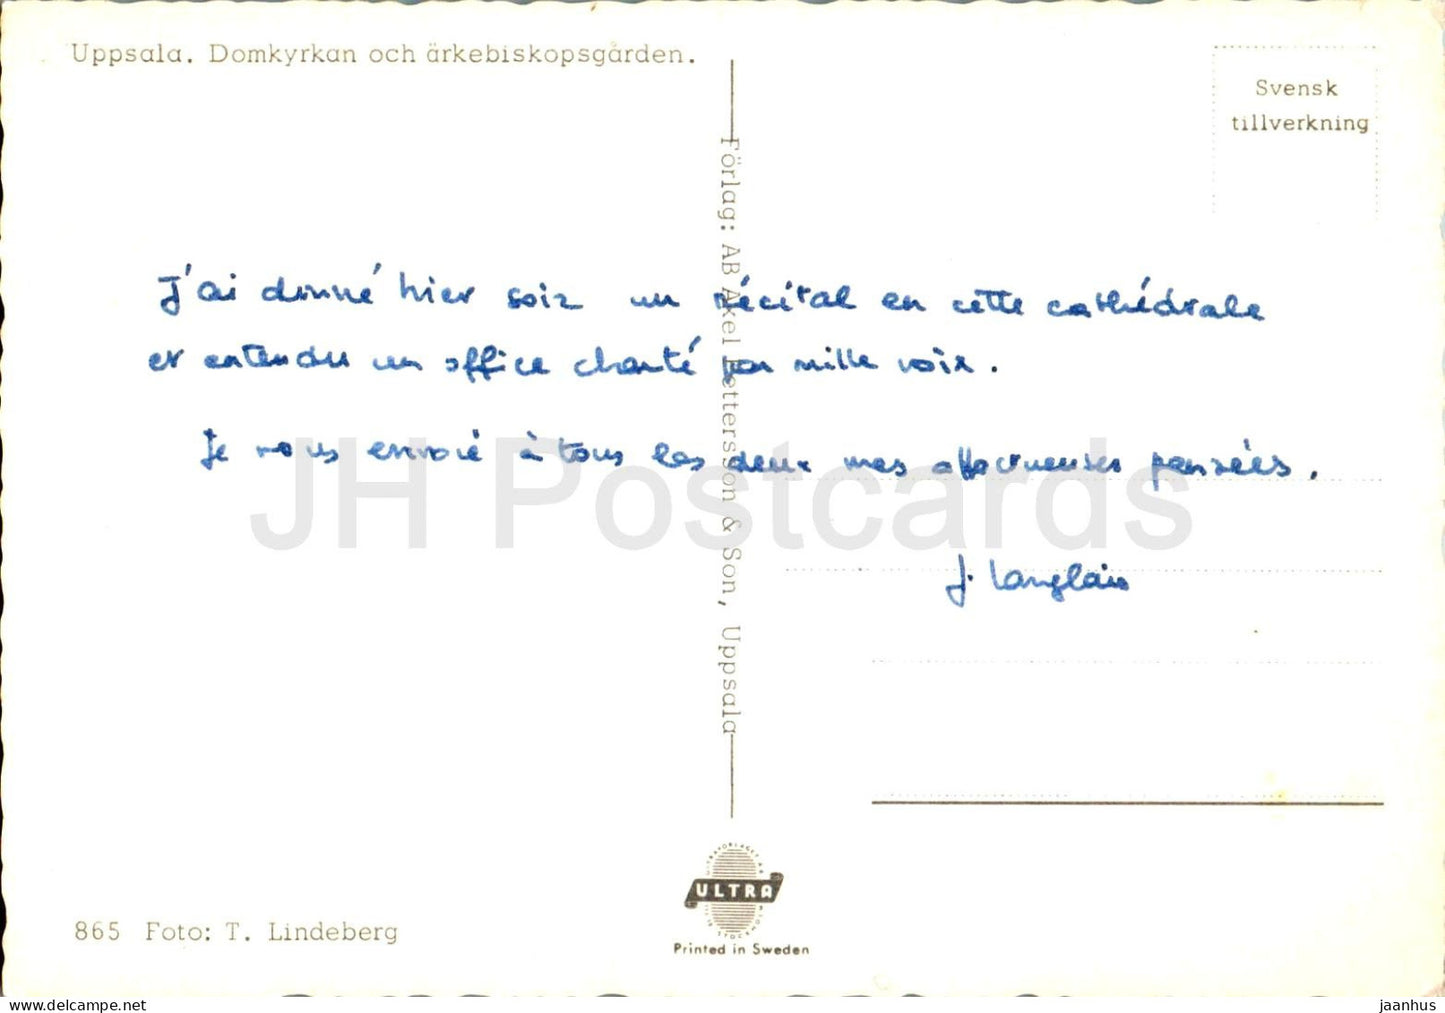 Uppsala. Domkyrkan och ärkebiskopsgården.
Svensk
tillverkning
Förlag: AB Axel Pettersson & Son, Uppsala
J'ai donné hier soir un récital en cette cathédrale
et entendu un office chanté par mille voix.
Je vous envoie à tous les deux mes affectueuses pensées.
J. Langlais
JH Postcards
865 Foto: T. Lindeberg
ULTRA
Printed in Sweden
www.delcampe.net
jaanhus